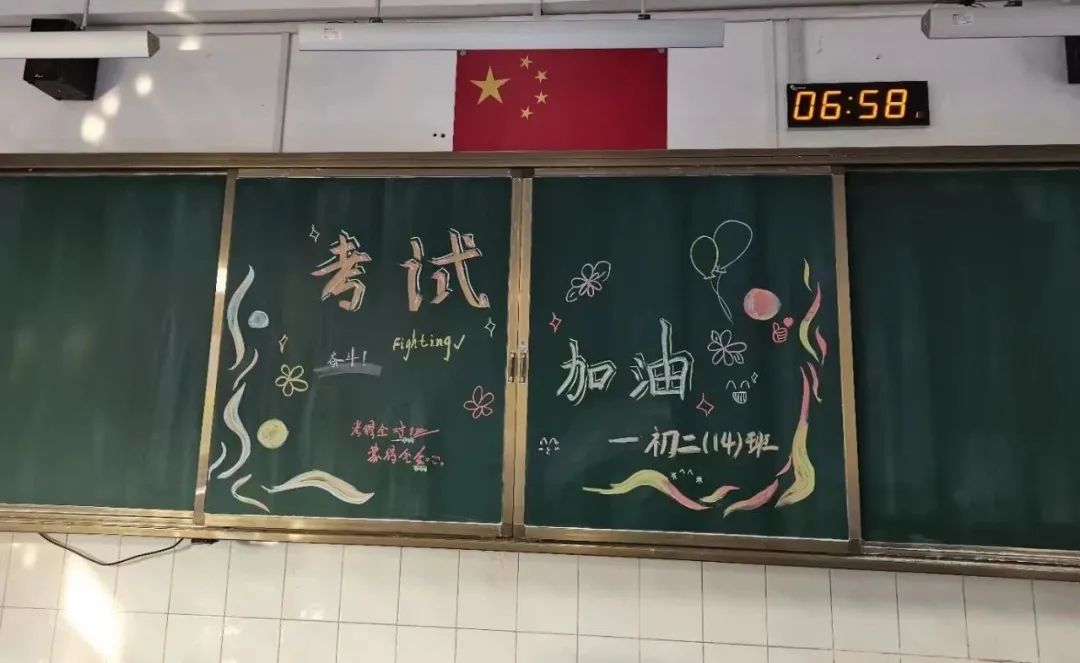 06:58
考试
Fighting
奋斗！
考得全对
蒙得全会
加油
—初二(14)班